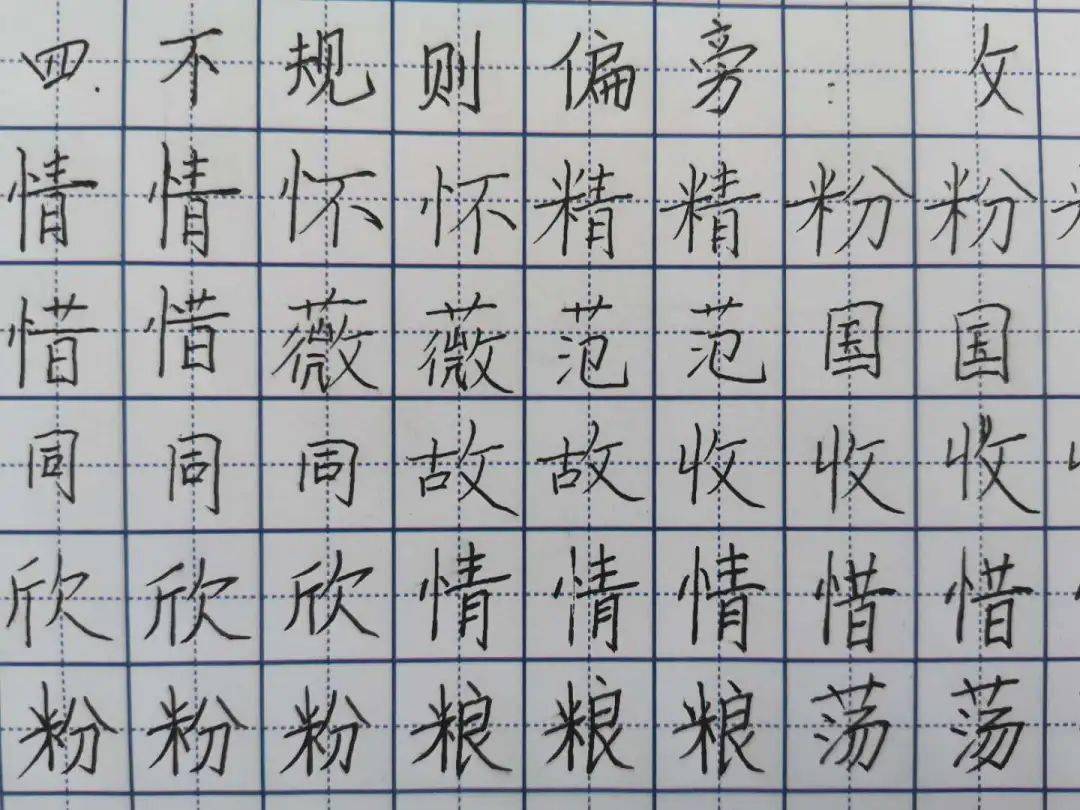 四.不规则偏旁: 攵
情情怀怀精精粉粉
惜惜薇薇范范国国
同同同故故收收收
欣欣欣情情情惜惜
粉粉粉粮粮粮荡荡